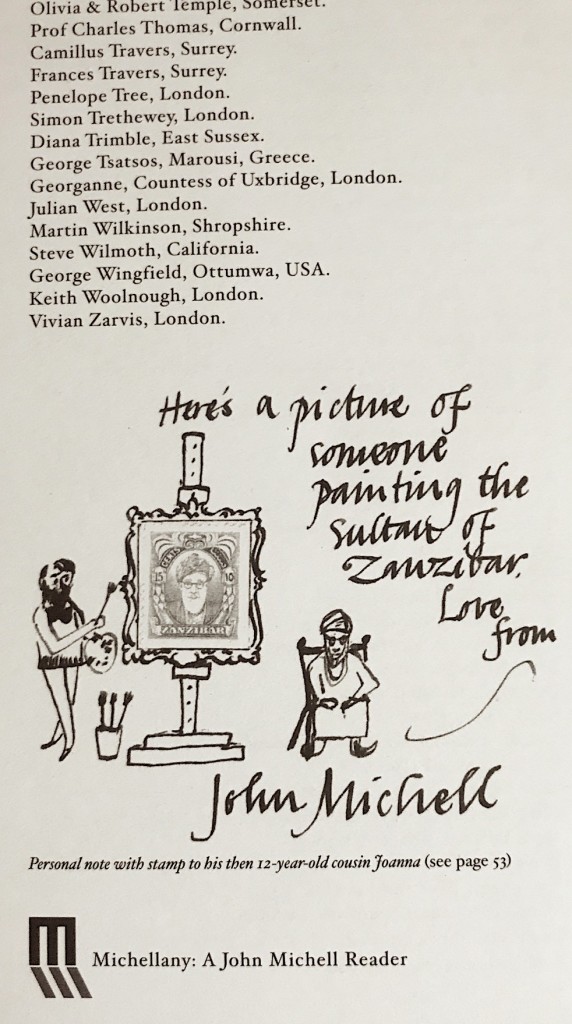 Olivia & Robert Temple, Somerset.
Prof Charles Thomas, Cornwall.
Camillus Travers, Surrey.
Frances Travers, Surrey.
Penelope Tree, London.
Simon Trethewey, London.
Diana Trimble, East Sussex.
George Tsatsos, Marousi, Greece.
Georganne, Countess of Uxbridge, London.
Julian West, London.
Martin Wilkinson, Shropshire.
Steve Wilmoth, California.
George Wingfield, Ottumwa, USA.
Keith Woolnough, London.
Vivian Zarvis, London.
Here's a picture of
someone
painting the
Sultan of
Zanzibar.
Love
from
CENTS
15 10
ZANZIBAR
John Michell
Personal note with stamp to his then 12-year-old cousin Joanna (see page 53)
Michellany: A John Michell Reader